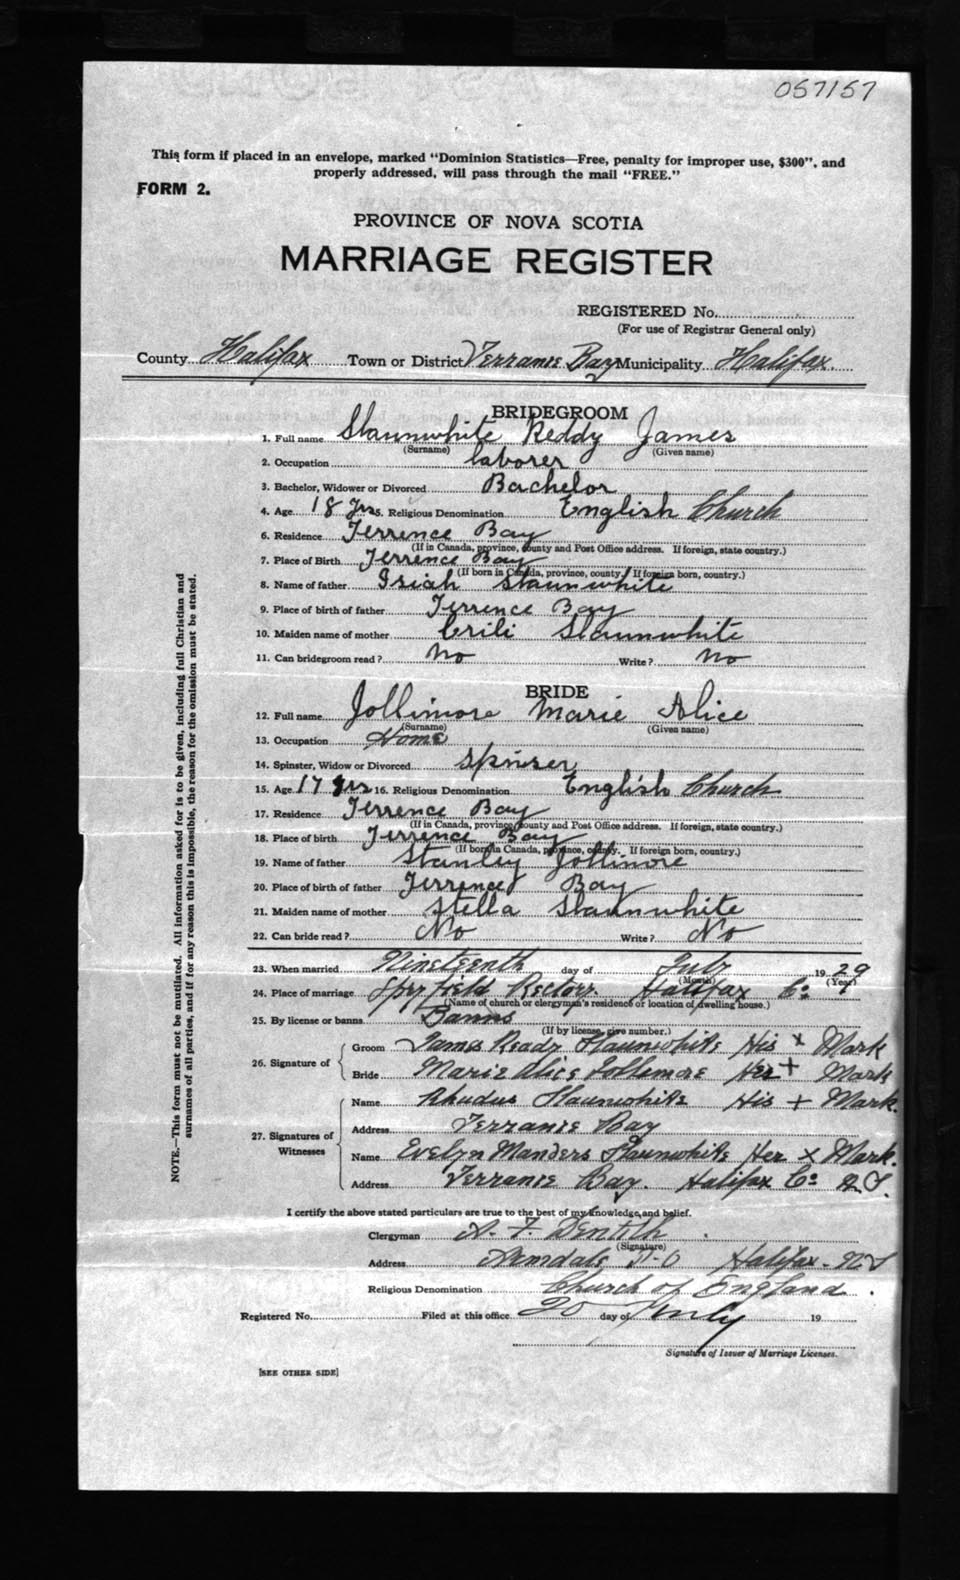 057157
This form if placed in an envelope, marked "Dominion Statistics—Free, penalty for improper use, $300", and
properly addressed, will pass through the mail "FREE."
FORM 2.
PROVINCE OF NOVA SCOTIA
MARRIAGE REGISTER
REGISTERED No.
(For use of Registrar General only)
County Halifax Town or District Terranse Bay Municipality Halifax.
BRIDEGROOM
1. Full name Slaunwhite Reddy James
(Surname) (Given name)
2. Occupation laborer
3. Bachelor, Widower or Divorced Bachelor
4. Age 18 Yrs 5. Religious Denomination English Church
6. Residence Terrence Bay
(If in Canada, province, county and Post Office address. If foreign, state country.)
7. Place of Birth Terrence Bay
(If born in Canada, province, county. If foreign born, country.)
8. Name of father Isiah Slaunwhite
9. Place of birth of father Terrence Bay
10. Maiden name of mother Crili Slaunwhite
11. Can bridegroom read? No Write? No
BRIDE
12. Full name Jollimore Marie Alice
(Surname) (Given name)
13. Occupation Home
14. Spinster, Widow or Divorced Spinser
15. Age 17 yrs 16. Religious Denomination English Church
17. Residence Terrence Bay
(If in Canada, province, county and Post Office address. If foreign, state country.)
18. Place of birth Terrence Bay
(If born in Canada, province, county. If foreign born, country.)
19. Name of father Stanley Jollimore
20. Place of birth of father Terrence Bay
21. Maiden name of mother Stella Slaunwhite
22. Can bride read? No Write? No
23. When married Nineteenth day of July 1929
(Month) (Year)
24. Place of marriage Rectory Halifax Co
(Name of church or clergyman's residence or location of dwelling house.)
25. By license or banns Banns
(If by license, give number.)
26. Signature of Groom James Ready Slaunwhite His x Mark
Bride Marie Alice Jollemore Her + Mark
27. Signatures of Witnesses Name Rhudus Slaunwhite His + Mark.
Address Terranse Bay
Name Evelyn Manders Slaunwhite Her x Mark.
Address Terranse Bay. Halifax Co N.S.
I certify the above stated particulars are true to the best of my knowledge and belief.
Clergyman A. F. Dentith
(Signature)
Address Armdale P.O Halifax - N S
Religious Denomination Church of England.
Registered No. Filed at this office 20 day of July 19
Signature of Issuer of Marriage Licenses.
[SEE OTHER SIDE]
NOTE.—This form must not be mutilated. All information asked for is to be given, including full Christian and
surnames of all parties, and if for any reason this is impossible, the reason for the omission must be stated.